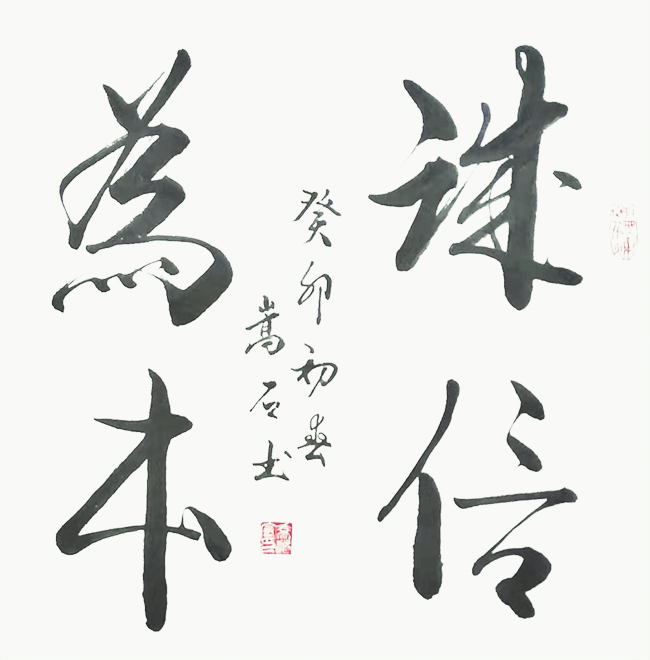 誠信
為本
癸卯初春
嵩石书